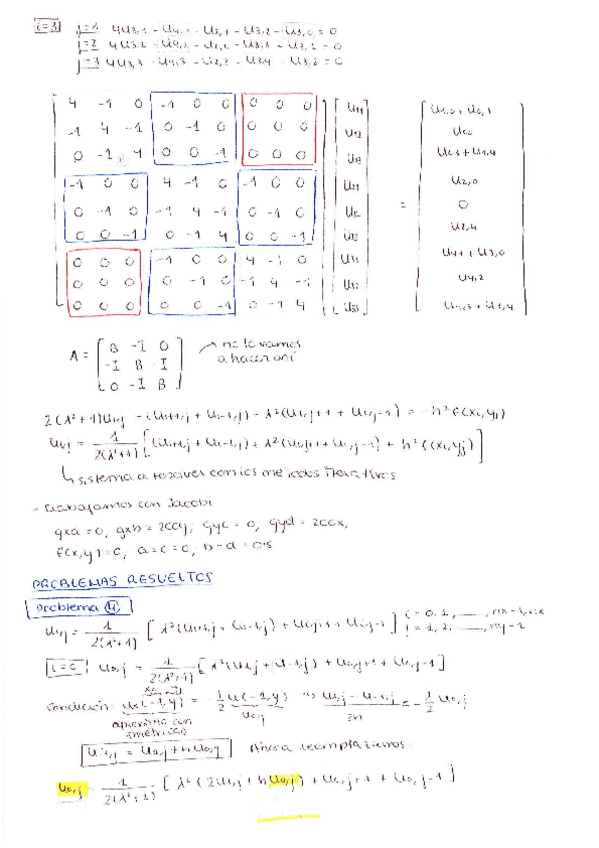 i=3 j=1 4u3,1 - u4,1 - u2,1 - u3,2 - u3,0 = 0
j=2 4u3,2 - u4,2 - u2,2 - u3,3 - u3,1 = 0
j=3 4u3,3 - u4,3 - u2,3 - u3,4 - u3,2 = 0
4 -1 0 -1 0 0 0 0 0 u11 u1,0 + u0,1
-1 4 -1 0 -1 0 0 0 0 u12
0 -1 4 0 0 -1 0 0 0 u13 u0,3 + u1,4
-1 0 0 4 -1 0 -1 0 0 u21 u2,0
0 -1 0 -1 4 -1 0 -1 0 = 0
0 0 -1 0 -1 4 0 0 -1 u2,4
0 0 0 -1 0 0 4 -1 0 u31 u4,1 + u3,0
0 0 0 0 -1 0 -1 4 -1 u32 u4,2
0 0 0 0 0 -1 0 -1 4 u33 u4,3 + u3,4
A = B -I 0 → no lo vamos
-I B -I a hacer así
0 -I B
2(λ²+1)ui,j - (ui+1,j + ui-1,j) - λ²(ui,j+1 + ui,j-1) = -h² f(xi,yj)
ui,j = 1/2(λ²+1) [(ui+1,j + ui-1,j) + λ²(ui,j+1 + ui,j-1) + h² f(xi,yj)]
↳ sistema a resolver con los métodos iterativos
- Trabajamos con Jacobi
gxa = 0, gxb = 200y, gyc = 0, gyd = 200x,
f(x,y) = 0, a = c = 0, b = d = 0.5
PROBLEMAS RESUELTOS
Problema 4
ui,j = 1/2(λ²+1) [λ²(ui+1,j + ui-1,j) + ui,j+1 + ui,j-1] i = 0, 1, ......, nx-1, nx
j = 1, 2, ......, ny-1
i=0 u0,j = 1/2(λ²+1) [λ²(u1,j + u-1,j) + u0,j+1 + u0,j-1]
Condición: ux(-1,y) = -1/2 u(-1,y) ⇒ u1,j - u-1,j/2h = -1/2 u0,j
x0 yj
u0,j
aproximo con
simétricas
u-1,j = u1,j + h u0,j Ahora reemplazamos:
u0,j = 1/2(λ²+1) [λ²(2u1,j + h u0,j) + u0,j+1 + u0,j-1]